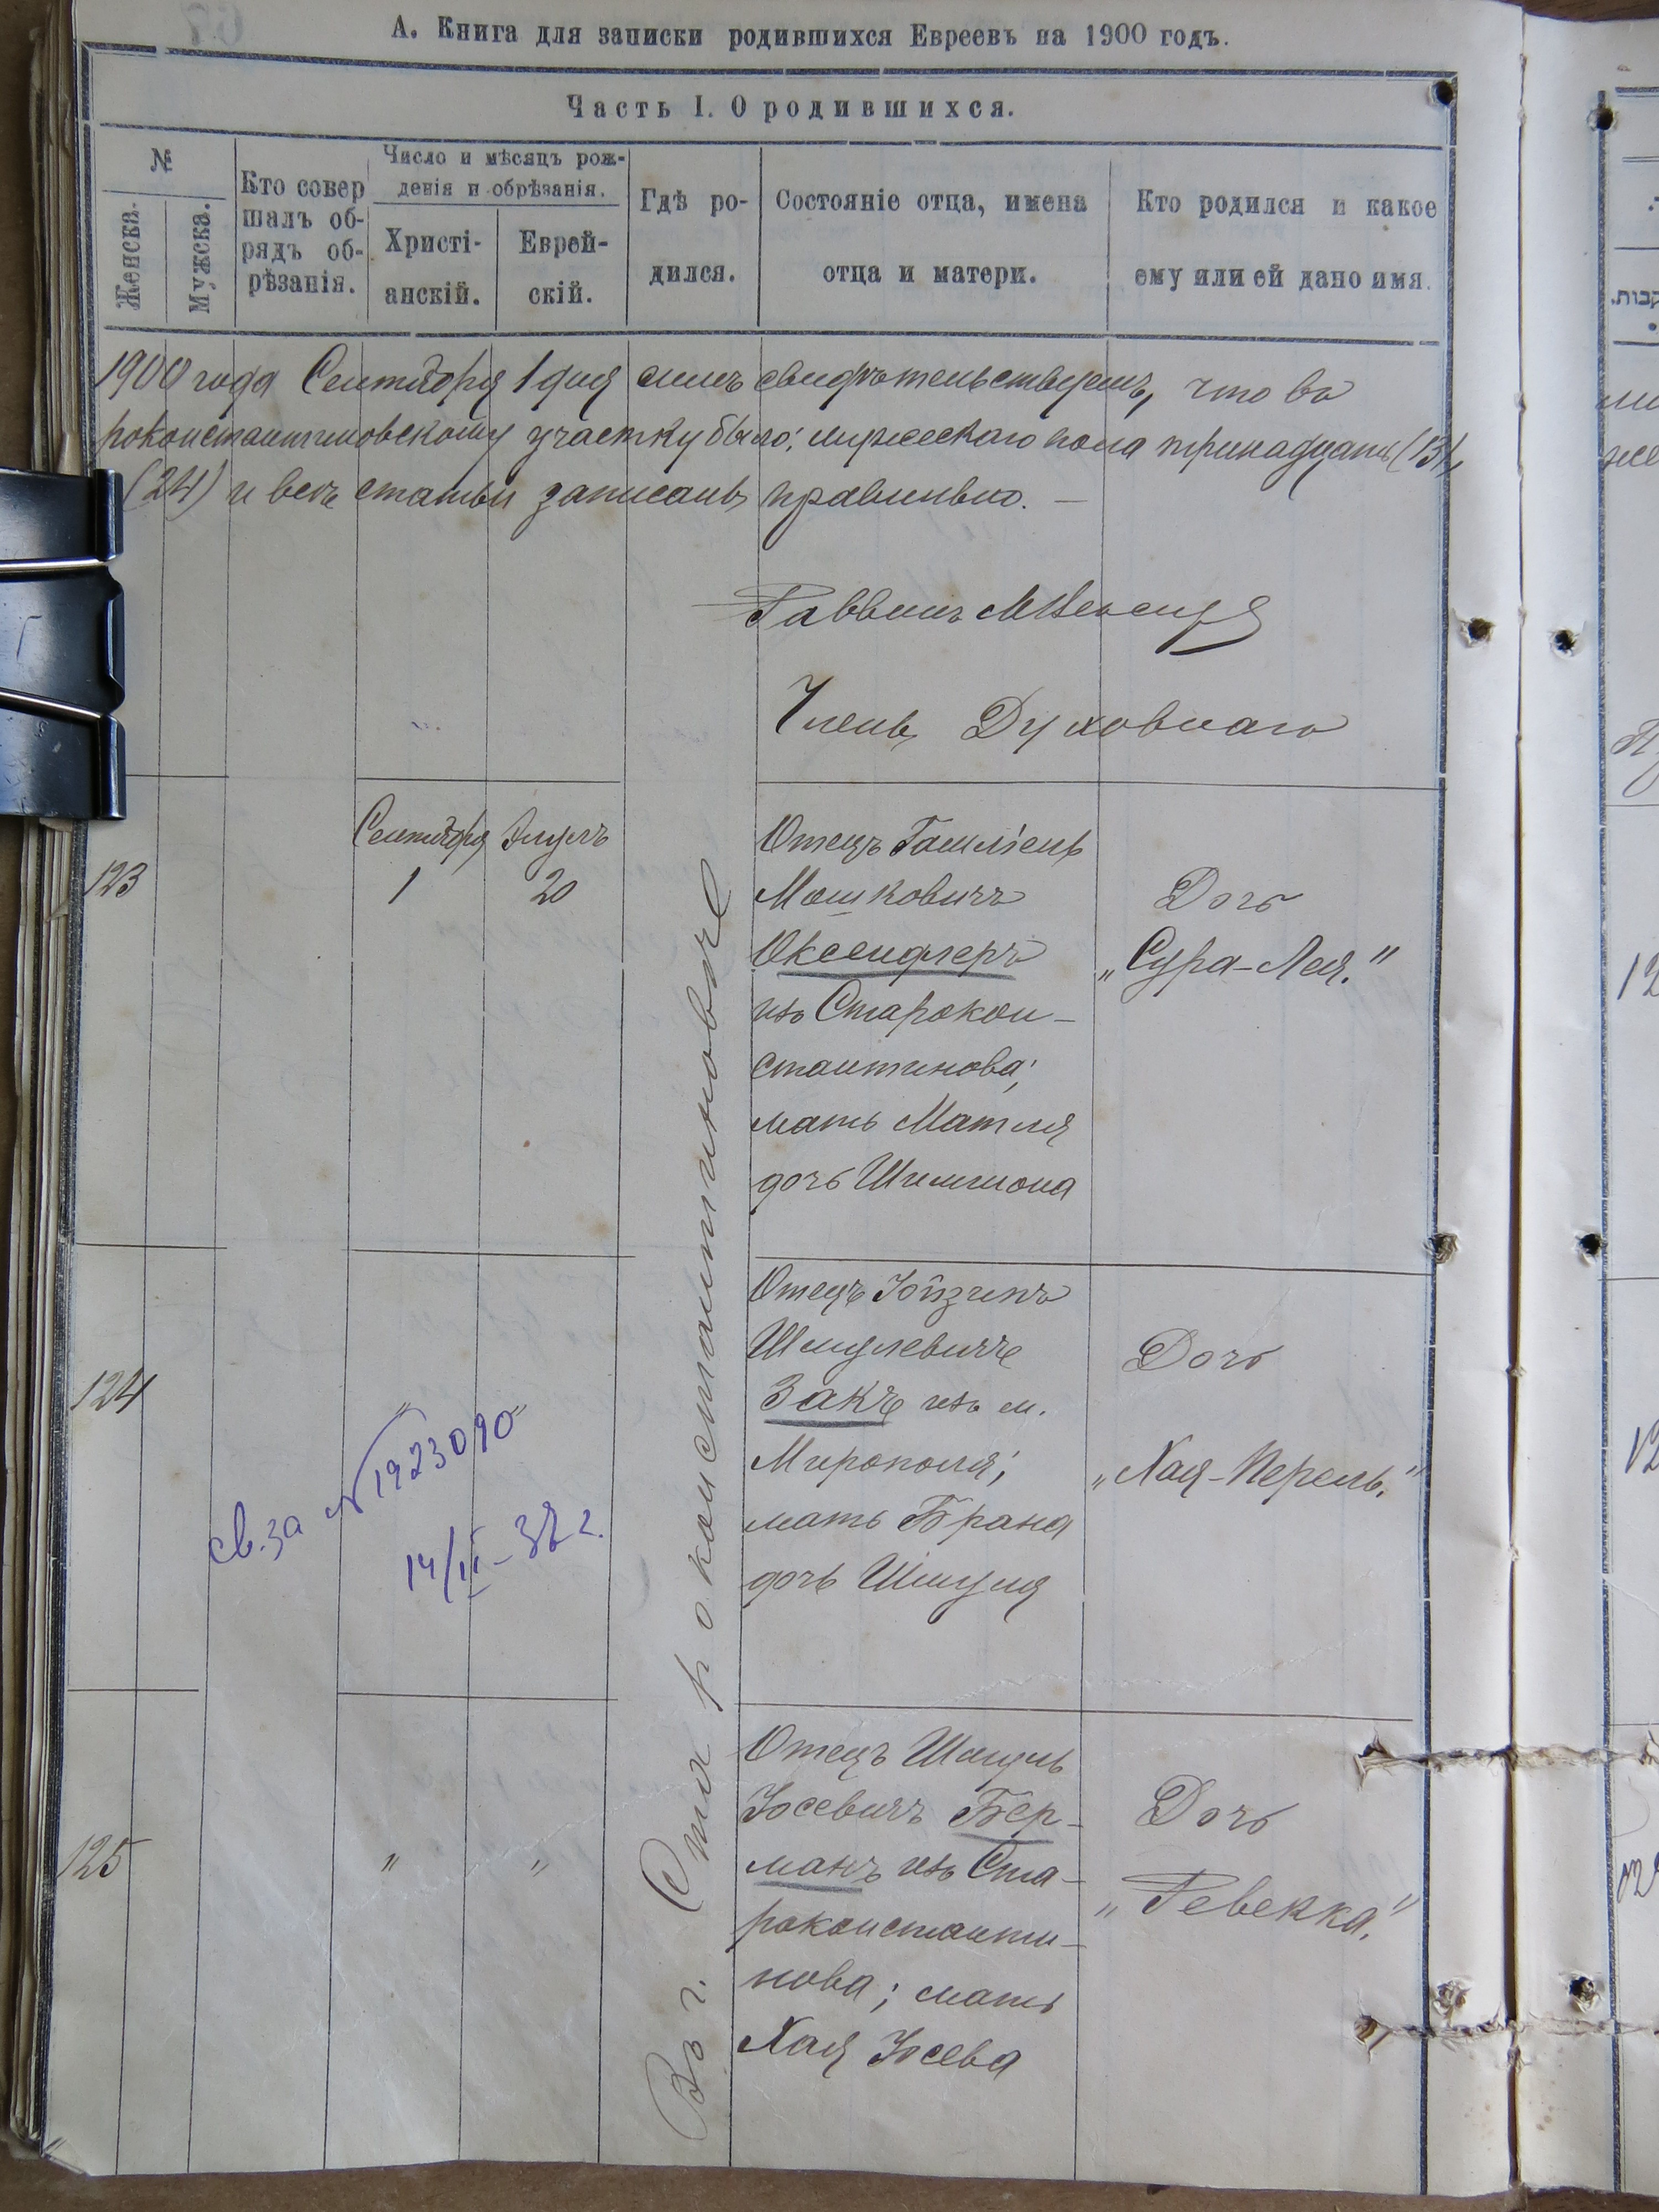 А. Книга для записки родившихся Евреевъ на 1900 годъ.
Часть I. О родившихся.
№
Женска.
Мужска.
Кто совер
шалъ об-
рядъ об-
рѣзанія.
Число и мѣсяцъ рож-
денія и обрѣзанія.
Христі-
анскій.
Еврей-
скій.
Гдѣ ро-
дился.
Состояніе отца, имена
отца и матери.
Кто родился и какое
ему или ей дано имя.
1900 года Сентября 1 дня симъ свидѣтельствуемъ, что въ
роконстантиновскому участку было: мужескаго пола тринадцать (13),
(24) и всѣ статьи записаны правильно. —
Раввинъ
Членъ Духовнаго
123
Сентября
1
Элулъ
20
Въ г. Староконстантиновѣ
Отецъ
Мошковичъ
Оксендлеръ
изъ Старокон-
стантинова;
мать Матля
дочь Шимшона
Дочь
„Сура-Лея."
124
"
"
св. за № 1923090
14/II-37 г.
Отецъ Юйзипъ
Шмулевичъ
Закъ изъ м.
Мирополя;
мать Брана
дочь Шмуля
Дочь
„Хая-Перель."
125
"
"
Отецъ Шмуль
Іосевичъ Бер-
манъ изъ Ста-
роконстанти-
нова; мать
Хая Іосева
Дочь
„Ревекка."